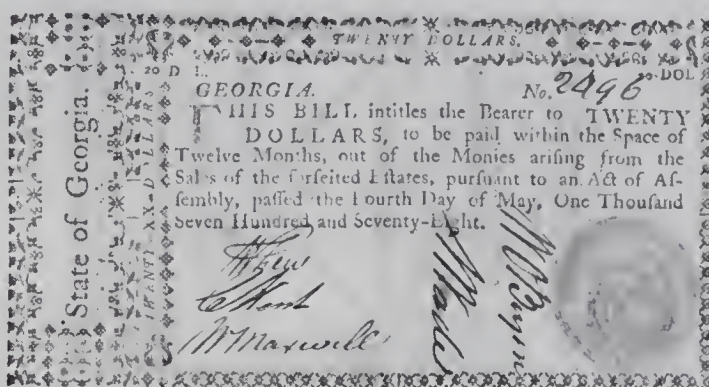 TWENTY DOLLARS.
State of Georgia.
TWENTY-XX-DOLLARS
20 D L.
20 DOL
GEORGIA. No. 2496
THIS BILL intitles the Bearer to TWENTY
DOLLARS, to be paid within the Space of
Twelve Months, out of the Monies ariſing from the
Sales of the forfeited Eſtates, purſuant to an Act of Aſ-
ſembly, paſſed the Fourth Day of May, One Thouſand
Seven Hundred and Seventy-Eight.
C Kent
W Maxwell